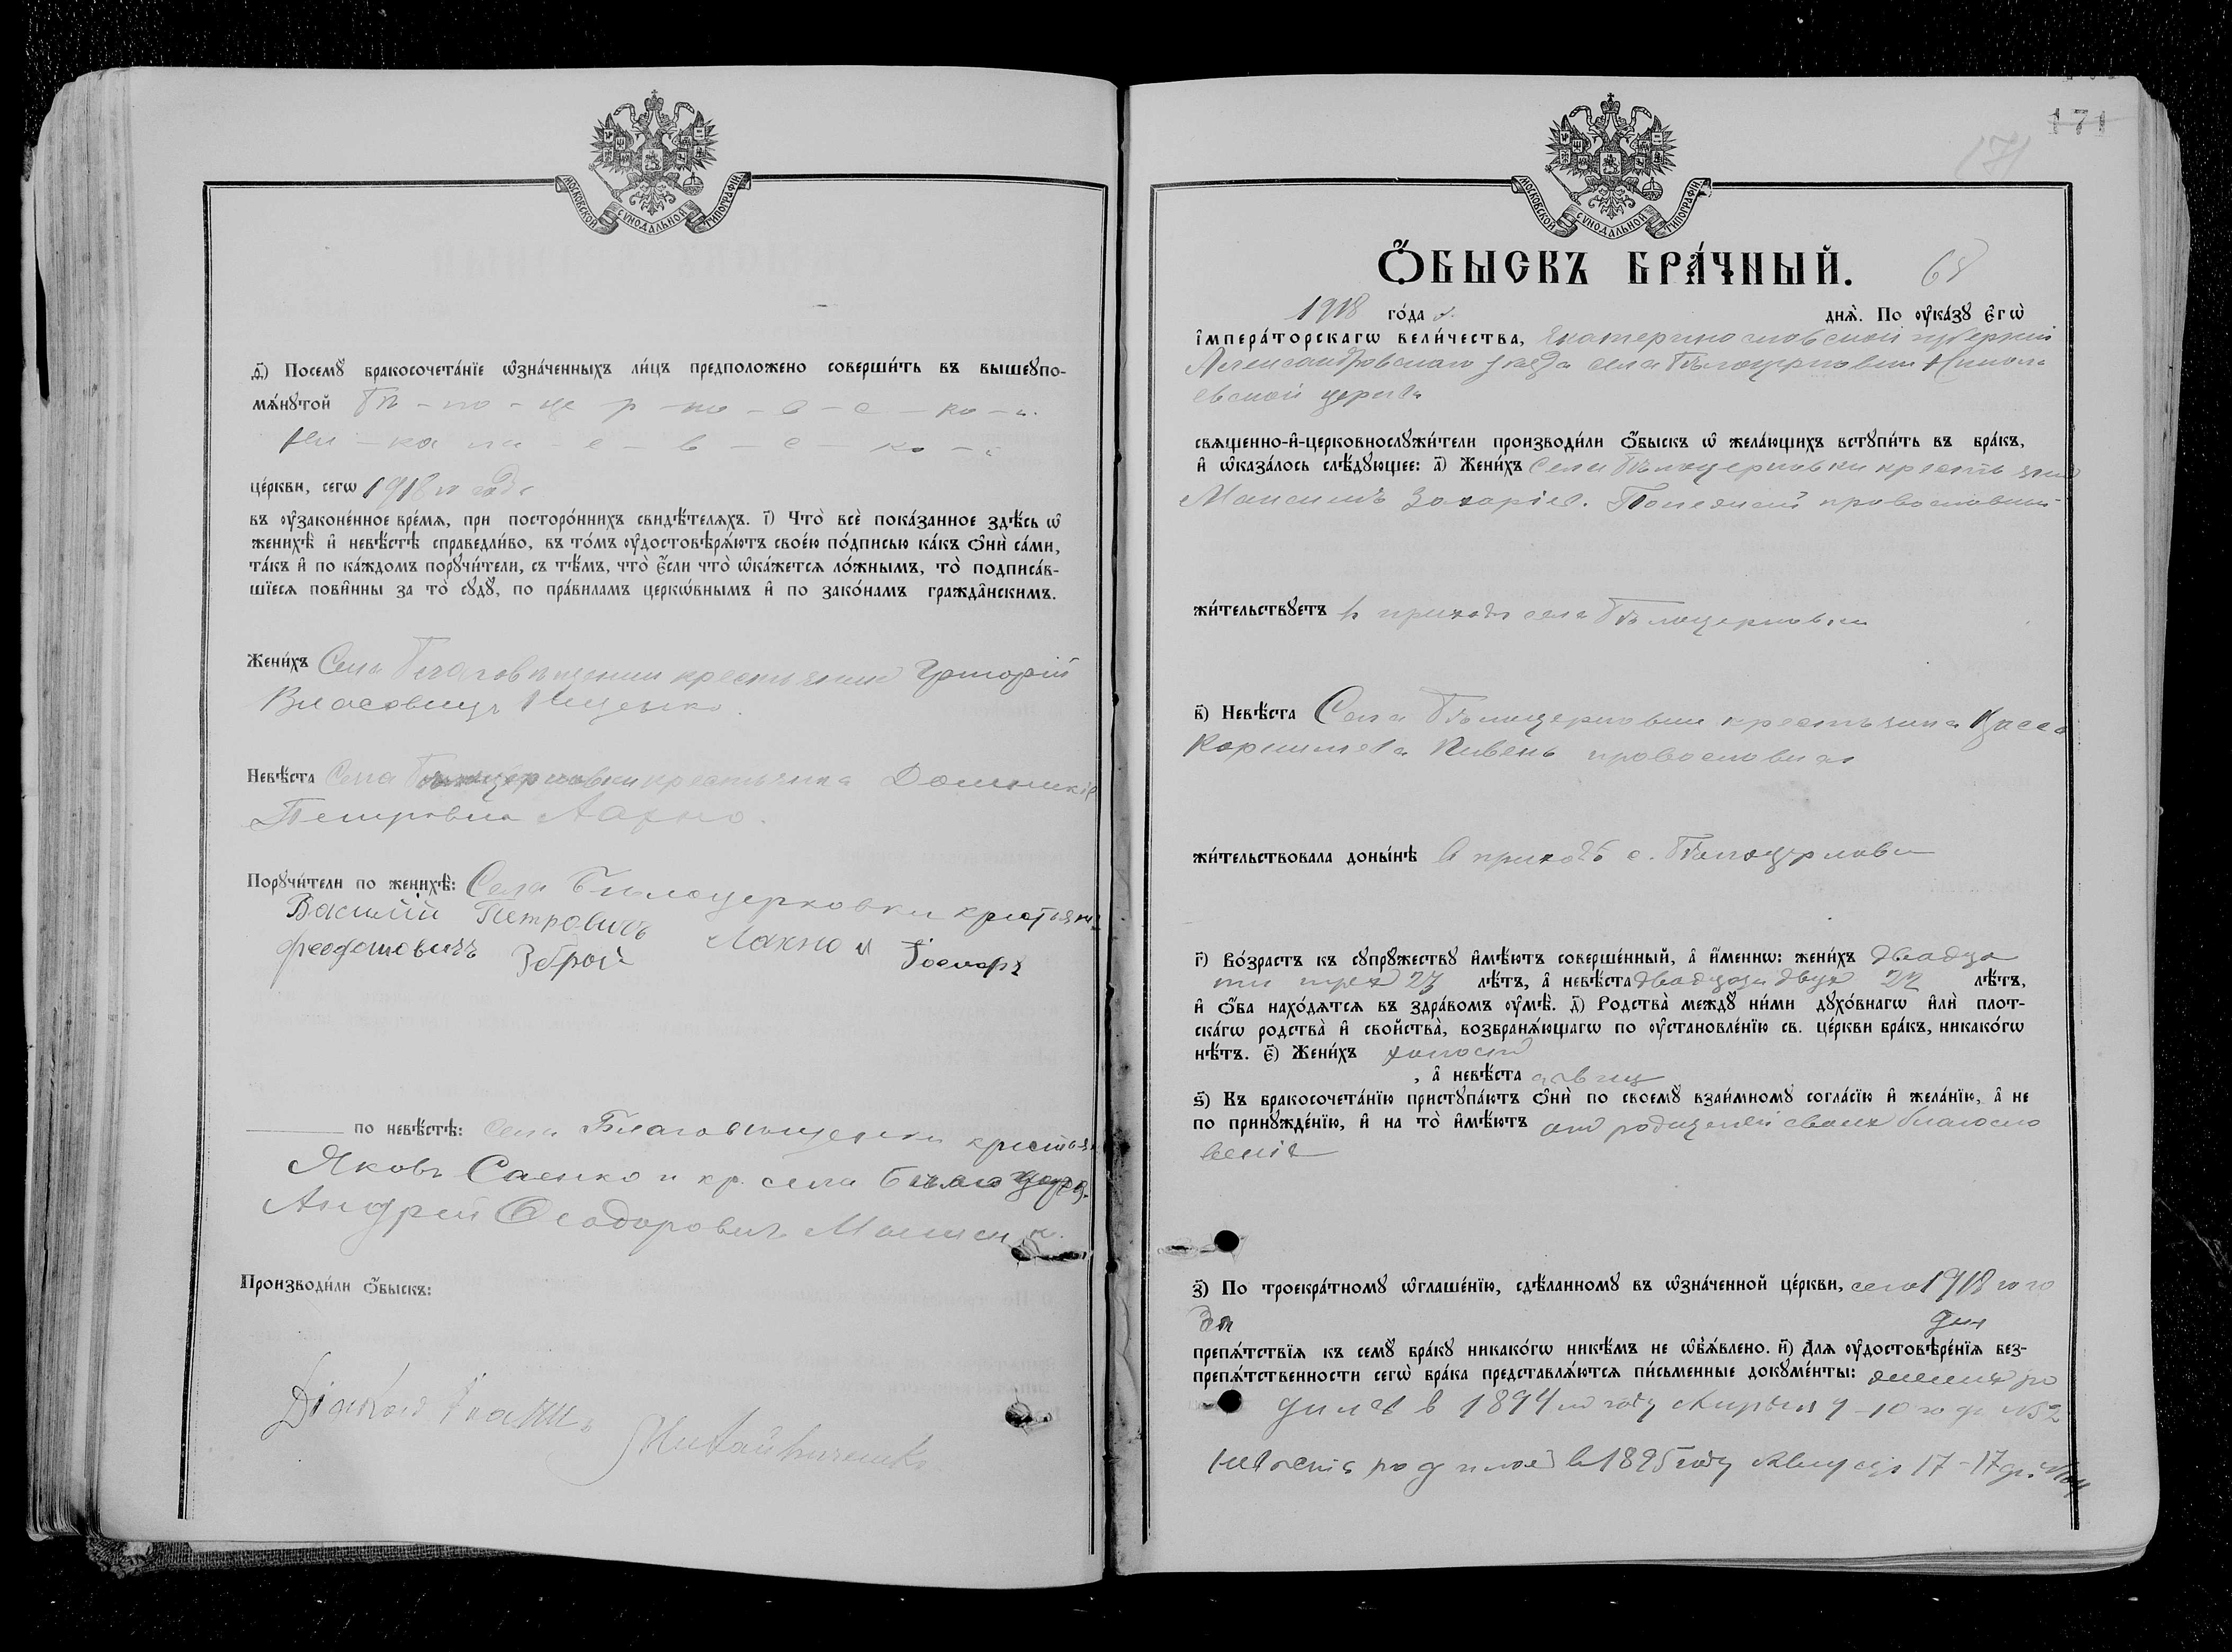 МОСКОВСКОЙ СѴНОДАЛЬНОЙ ТИПОГРАФІИ
д҃) Посемꙋ бракосочета́нїе ѡ҆зна́ченныхъ ли́цъ предположено соверши́ть въ вышеꙋпо-
мѧ́нꙋтой Бѣ-ло-це-р-ко-в-с-ко-й
Ни-ко-ла-е-в-с-ко-й
це́ркви, сегѡ 1918 го года
въ ᲂу҆законе́нное вре́мѧ, при посторо́ннихъ свидѣ́телѧхъ. і҃) Что̀ всѐ пока́занное здѣ́сь ѡ҆
женихѣ̀ и҆ невѣ́стѣ справедли́во, въ то́мъ ᲂу҆достовѣрѧ́ютъ свое́ю по́дписью ка́къ Ѻ҆нѝ са́ми,
та́къ и҆ по ка́ждомъ порꙋчи́тели, съ тѣ́мъ, что̀ є҆́сли что̀ ѡ҆ка́жетсѧ ло́жнымъ, то̀ подписа́в-
шїесѧ пови́нны за то̀ сꙋдꙋ̀, по пра́виламъ церко́внымъ и҆ по зако́намъ гражда́нскимъ.
Жени́хъ Села Благовѣщенки крестьянинъ Григорій
Власовичъ Ищенко.
Невѣ́ста Села Бѣлоцерковки крестьянка Домникія
Петровна Лахно.
Порꙋчи́тели по женихѣ̀: Села Бѣлоцерковки крестьяне
Василій Петровичъ Лахно и Іосифъ
Феодотовичъ Зеброй
по невѣ́стѣ: Села Благовѣщенки крестьян
Яковъ Саенко и кр. села Бѣлоцерк.
Андрей Феодоровичъ
Производи́ли Ѻ҆́быскъ:
Діаконъ
171
171
МОСКОВСКОЙ СѴНОДАЛЬНОЙ ТИПОГРАФІИ
Ѻ҆́БЫСКЪ БРА́ЧНЫЙ. 68
1918 го́да днѧ̀. По ᲂу҆ка́зꙋ Є҆гѡ̀
і҆мпера́торскагѡ вели́чества, Екатеринославской губерніи
Александровскаго уѣзда села Бѣлоцерковки Никола
евской церкви
свѧще́нно-и҆-церковнослꙋжи́тели производи́ли Ѻ҆́быскъ ѡ҆ жела́ющихъ встꙋпи́ть въ бра́къ,
и҆ ѡ҆каза́лось слѣ́дꙋющее: а҃) Жени́хъ Села Бѣлоцерковки крестьянинъ
Максимъ Захаріев. православный
жи́тельствꙋетъ въ приходѣ села Бѣлоцерковки
в҃) Невѣ́ста Села Бѣлоцерковки крестьянка
Корнилева Пивень православная
жи́тельствовала доны́нѣ въ приходѣ с. Бѣлоцерковки
г҃) Во́зрастъ къ сꙋпрꙋ́жествꙋ и҆мѣ́ютъ соверше́нный, а҆ и҆́меннѡ: жени́хъ двадца
ти трех 23 лѣ́тъ, а҆ невѣ́ста двадцати двух 22 лѣ́тъ,
и҆ Ѻ҆́ба нахо́дѧтсѧ въ здра́вомъ ᲂу҆мѣ̀. д҃) Родства̀ междꙋ̀ ни́ми дꙋхо́внагѡ и҆лѝ плот-
ска́гѡ родства̀ и҆ свойства̀, возбранѧ́ющагѡ по ᲂу҆становле́нїю св. це́ркви бра́къ, никако́гѡ
нѣ́тъ. є҃) Жени́хъ холостъ
, а҆ невѣ́ста дѣвица
ѕ҃) Къ бракосочета́нїю пристꙋпа́ютъ Ѻ҆нѝ по своемꙋ̀ взаи́мномꙋ согла́сїю и҆ жела́нїю, а҆ не
по принꙋжде́нїю, и҆ на то̀ и҆мѣ́ютъ от родителей своих благосло
веніе
з҃) По троекра́тномꙋ ѡ҆глаше́нїю, сдѣ́ланномꙋ въ ѡ҆зна́ченной це́ркви, сего 1918 го го
да дня
препѧ́тствїѧ къ семꙋ̀ бра́кꙋ никако́гѡ никѣ́мъ не ѡ҆бъѧ́влено. и҃) Длѧ ᲂу҆достовѣре́нїѧ без-
препѧ́тственности сегѡ̀ бра́ка представлѧ́ютсѧ пи́сьменные докꙋме́нты: жених ро
дился в 1894 го году Апрѣля 9-10 го д. №2
невѣста родилась в 1895 году Августа 17-17 д.